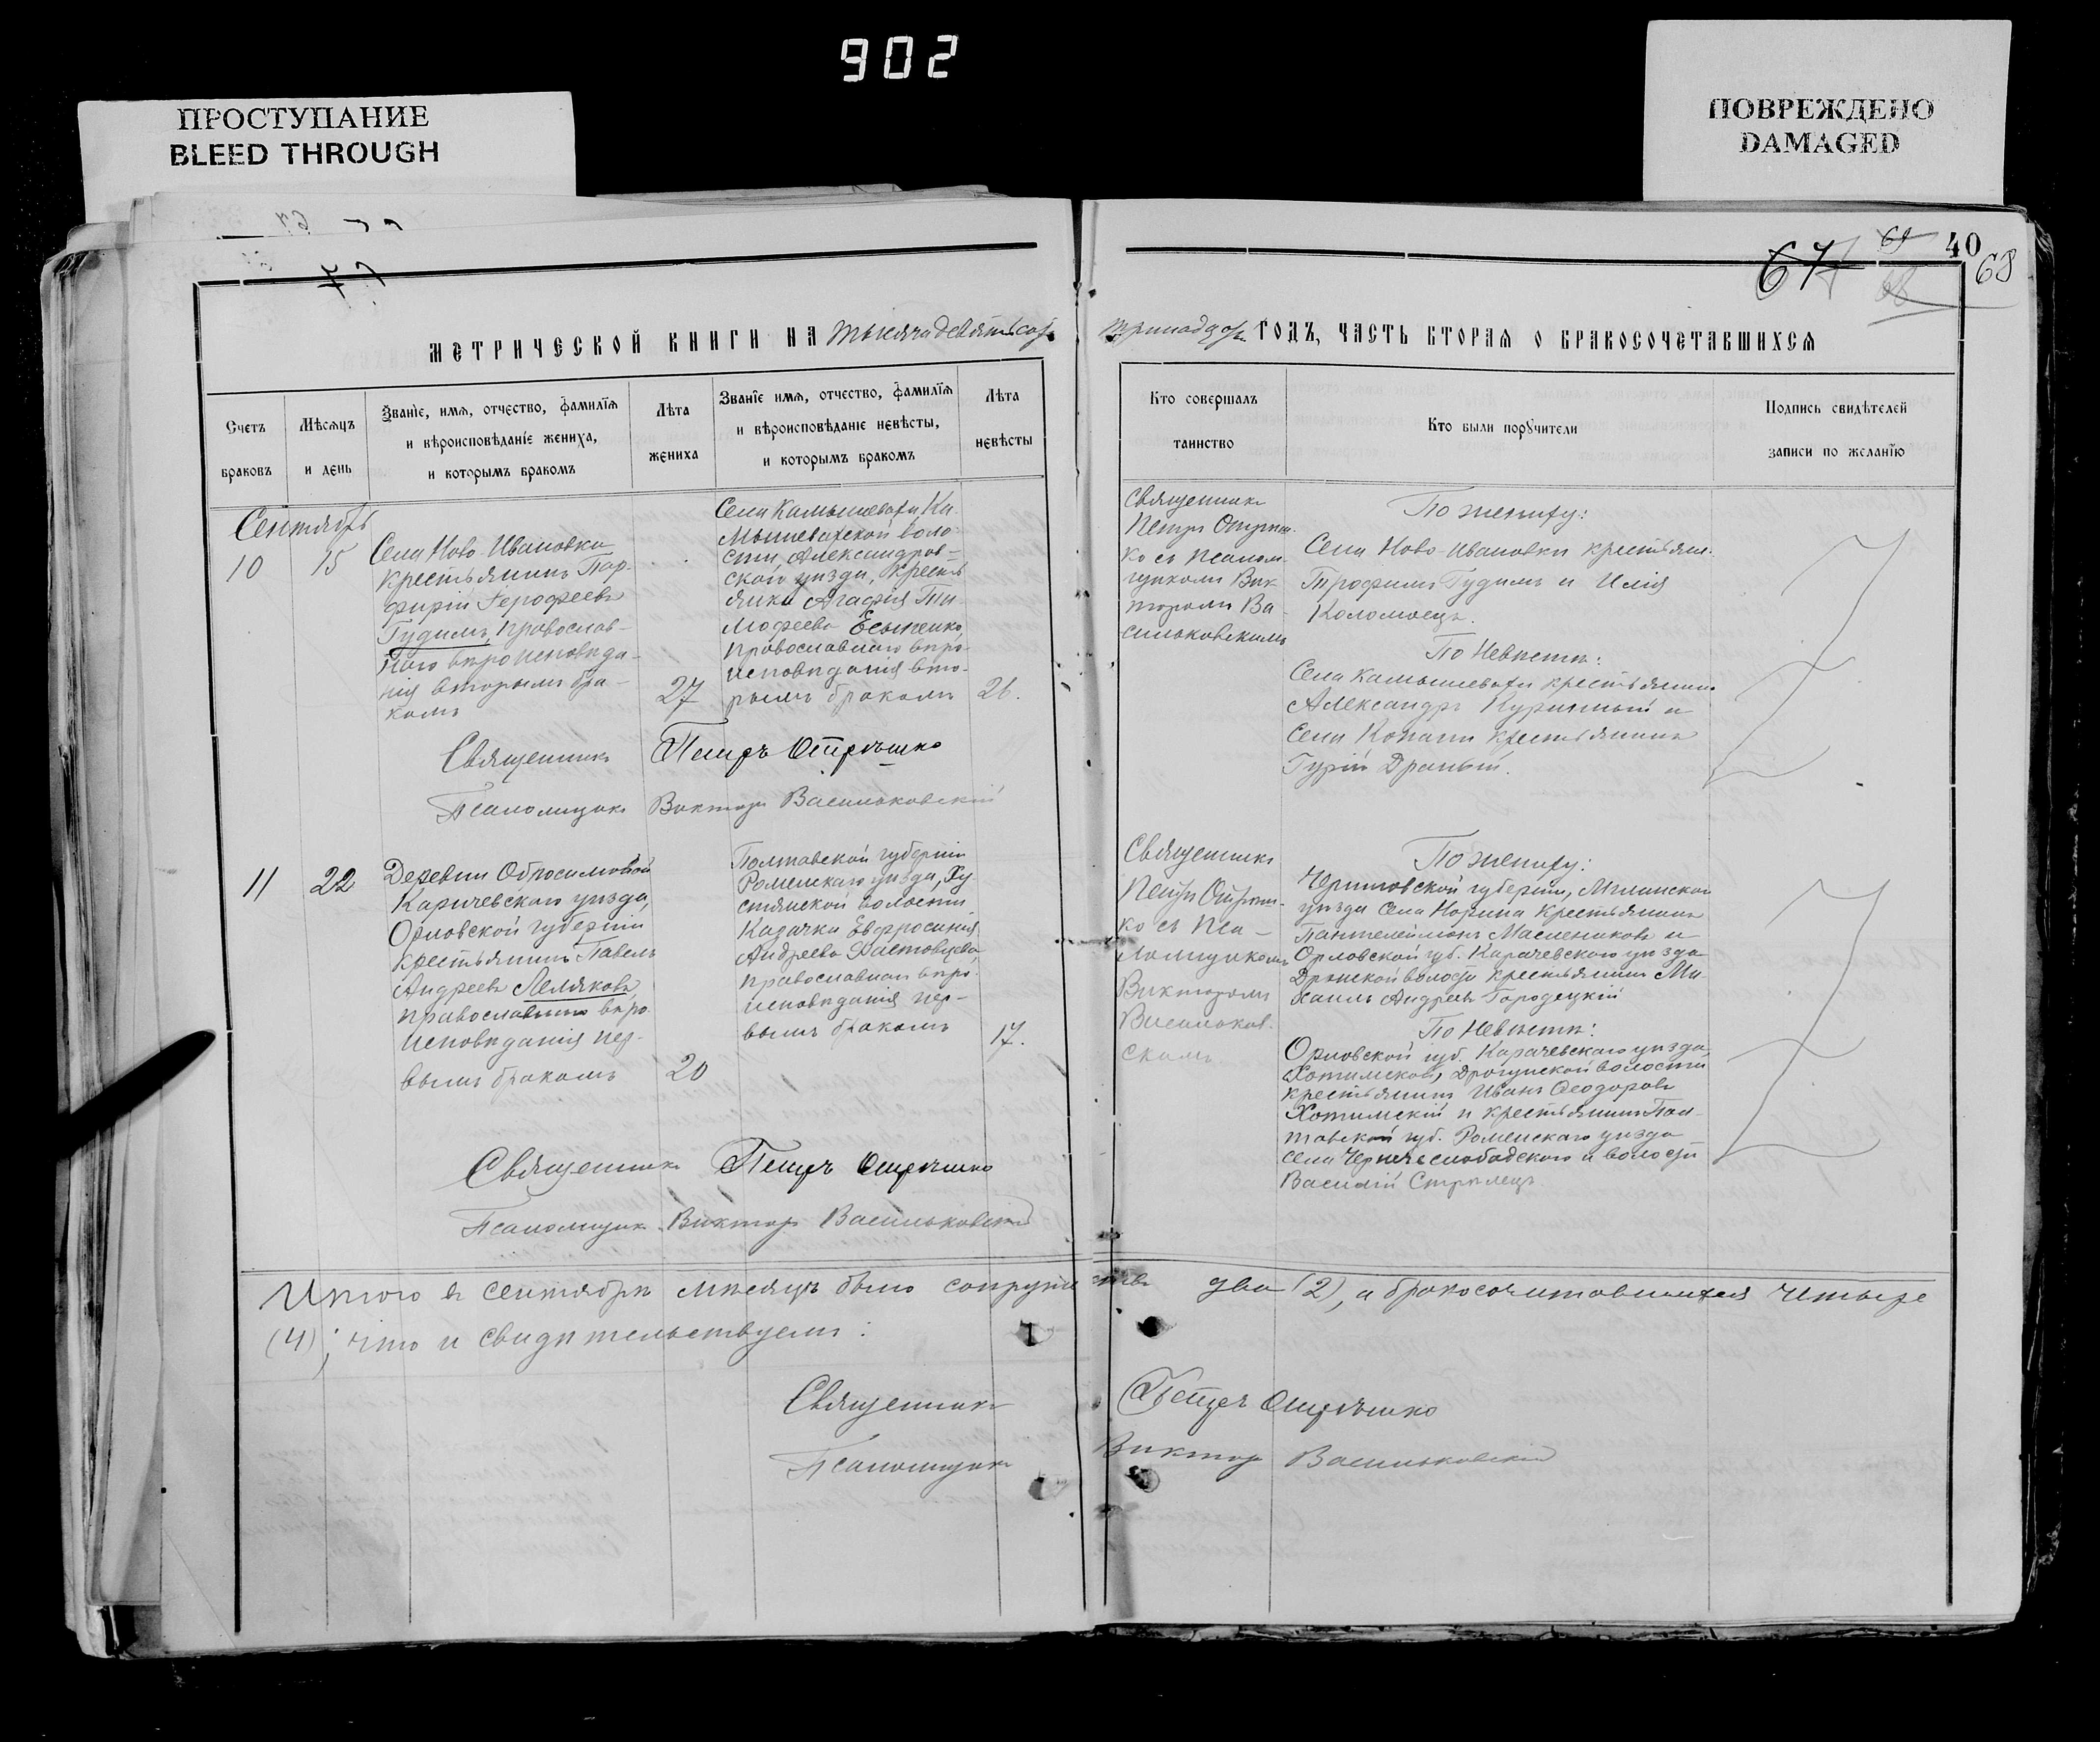 902
ПРОСТУПАНИЕ
BLEED THROUGH
ПОВРЕЖДЕНО
DAMAGED
67
69
68
40
68
МЕТРИЧЕСКОЙ КНИГИ НА тысяча девятьсотъ
тринадцат. ГОДЪ, ЧАСТЬ ВТОРАЯ О БРАКОСОЧЕТАВШИХСЯ
Счетъ
браковъ
Мѣсяцъ
и день
Званїе, имя, отчество, фамилїя
и вѣроисповѣданїе жениха,
и которымъ бракомъ
Лѣта
жениха
Званїе имя, отчество, фамилїя
и вѣроисповѣданїе невѣсты,
и которымъ бракомъ
Лѣта
невѣсты
Кто совершалъ
таинство
Кто были поручители
Подпись свидѣтелей
записи по желанїю
Сентябрь
10
15
Села Ново-Ивановки
крестьянинъ Пор-
фирій Герофеевъ
Гудимъ, православ-
наго вѣроисповѣда-
нія вторымъ бра-
комъ
27
Села Камышевахи Ка-
мышеватской воло-
сти, Александров-
скаго уѣзда, кресть
янка Агафія Ти-
мофеева Есыпенко,
православнаго вѣро-
исповѣданія вто-
рымъ бракомъ
26.
Священникъ
Петръ Отрѣш-
ко съ псалом-
щикомъ Вик
торомъ Ва-
сильковскимъ
По жениху:
Села Ново-Ивановки крестьян.
Трофимъ Гудимъ и Илія
Коломоецъ.
По невѣстѣ:
Села Камышевахи крестьянинъ
Александръ Куринный и
Села Копани крестьянинъ
Гурій Драный.
Священникъ Петръ Отрѣшко
Псаломщикъ Викторъ Васильковскій
11
22
Деревни Обросимовой
Карачевскаго уѣзда,
Орловской губерніи
крестьянинъ Павелъ
Андреевъ Леляковъ,
православнаго вѣро
исповѣданія пер-
вымъ бракомъ
20
Полтавской губерніи
Роменскаго уѣзда, Ху-
стянской волости
казачка Евфросинія
Андреева Хвастовцева,
православнаго вѣро-
исповѣданія пер-
вымъ бракомъ
17.
Священникъ
Петръ Отрѣш-
ко съ пса-
ломщикомъ
Викторомъ
Васильков-
скимъ
По жениху:
Черниговской губерніи, Мглинскаго
уѣзда села Норина крестьянинъ
Пантелеймонъ Маслениковъ и
Орловской губ. Карачевскаго уѣзда
Дронской волости крестьянинъ Ми-
хаилъ Андреевъ Городецкій
По невѣстѣ:
Орловской губ. Карачевскаго уѣзда,
Хотимской, Драгунской волости
крестьянинъ Иванъ Ѳеодоровъ
Хотимскій и крестьянинъ Пол-
тавской губ. Роменскаго уѣзда
села Чернечеслободского и волости
Василій Стрѣлецъ
Священникъ Петръ Отрѣшко
Псаломщикъ Викторъ Васильковскій
Итого въ сентябрѣ мѣсяцѣ было супружествъ два (2), а бракосочитавшихся четыре
(4); что и свидѣтельствуемъ:
Священникъ Петръ Отрѣшко
Псаломщикъ Викторъ Васильковскій